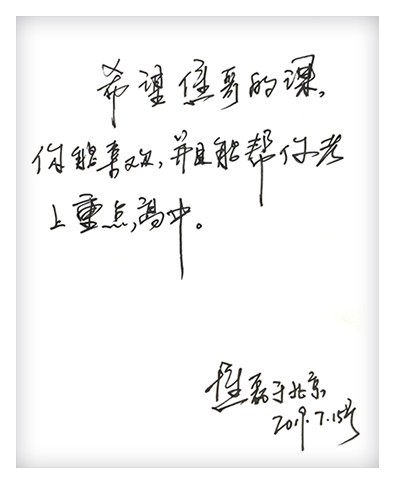 希望焦哥的课,
你能喜欢,并且能帮你考
上重点高中。
焦磊于北京
2019.7.15号